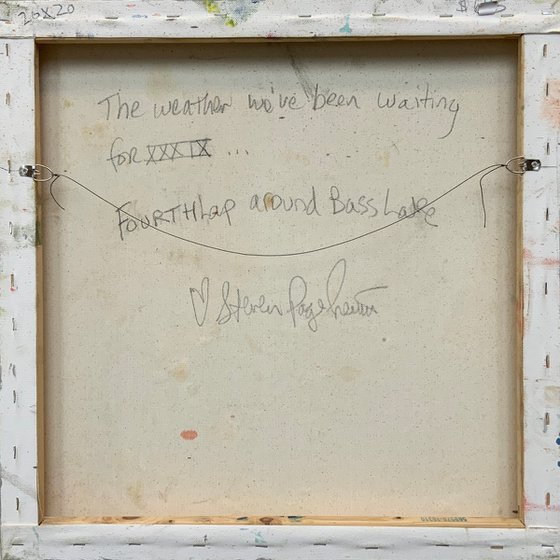 20x20
The weather we've been waiting
for XXXIX ...
FOURTH Lap around Bass Lake
♡ Steven Page